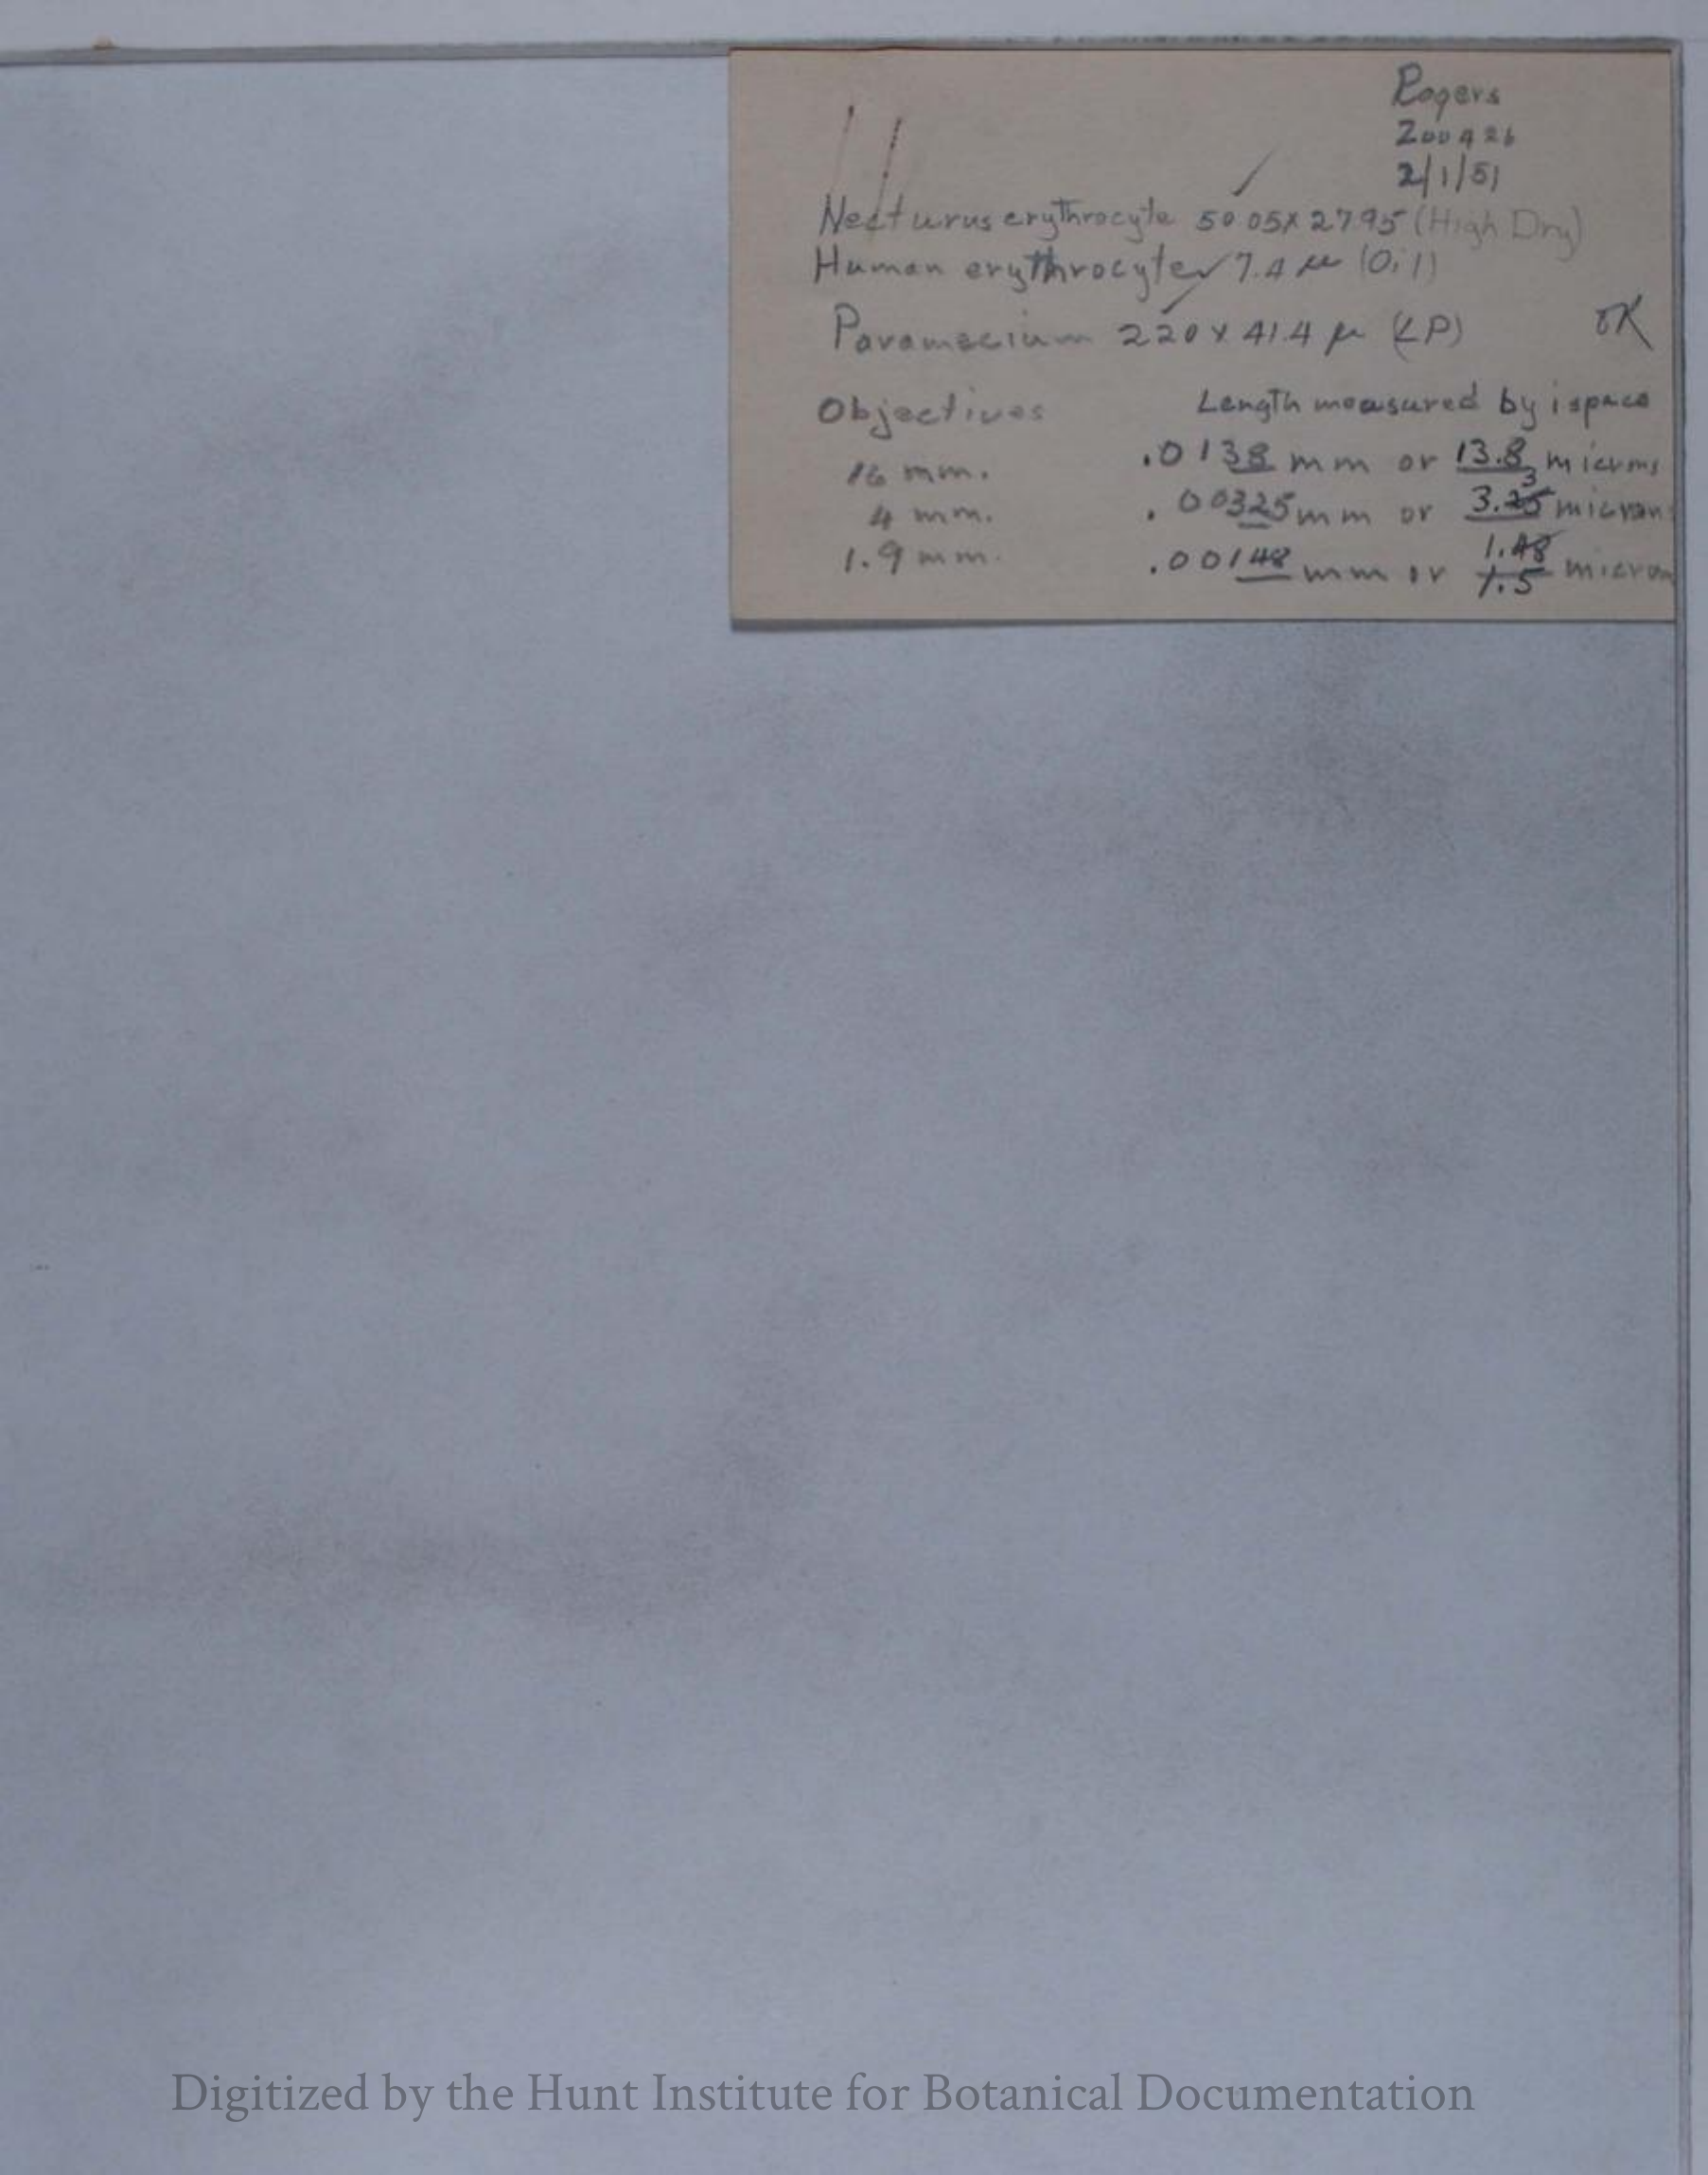 Rogers
Zoo 426
2/1/51
Necturus erythrocyte 50.05 x 27.95 (High Dry)
Human erythrocyte 7.4 μ (Oil)
Paramecium 220 x 41.4 μ (LP) OK
Objectives Length measured by 1 space
16 mm. .0138 mm or 13.8 microns
4 mm. .00325 mm or 3.25 3 microns
1.9 mm. .00148 mm or 1.48 1.5 micron
Digitized by the Hunt Institute for Botanical Documentation